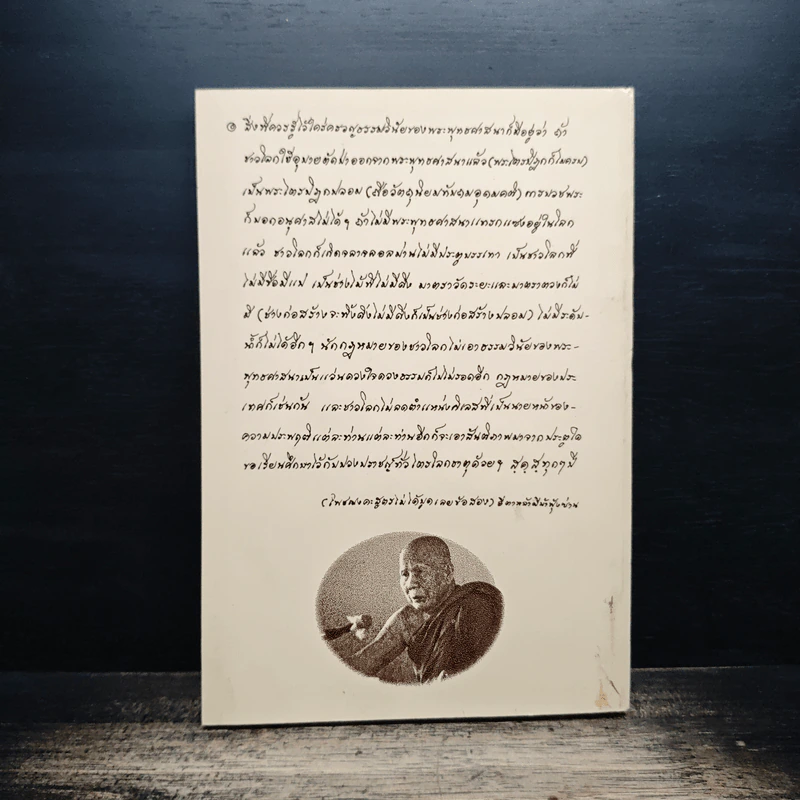 ๑ สิ่งที่ควรรู้ไว้ใคร่ครวญธรรมวินัยของพระพุทธศาสนาก็มีอยู่ว่า ถ้า
ชาวโลกใช้อุบายตัดป่าออกจากพระพุทธศาสนาแล้ว (พระไตรปิฎกก็ไม่ครบ)
เป็นพระไตรปิฎกปลอม (ถือวัตถุนิยมทับถมอุดมคติ) การบวชพระ
ก็บอกอนุศาสน์ไม่ได้ๆ ถ้าไม่มีพระพุทธศาสนาแทรกแซงอยู่ในโลก
แล้ว ชาวโลกก็เกิดจลาจลอลม่านไม่มีประตูบรรเทา เป็นชาวโลกที่
ไม่มีขื่อมีแป เป็นช่างไม้ที่ไม่มีดิ่ง มาตราวัดระยะและมาตราตวงก็ไม่
มี (ช่างก่อสร้างจะทิ้งดิ่งไม่มีดิ่งก็เป็นช่างก่อสร้างปลอม) ไม่มีระดับ-
น้ำก็ไม่ได้อีกๆ นักกฎหมายของชาวโลกไม่เอาธรรมวินัยของพระ-
พุทธศาสนาเป็นแว่นดวงใจดวงธรรมก็ไปไม่รอดอีก กฎหมายของประ
เทศก็เช่นกัน และชาวโลกไม่ลดตำแหน่งกิเลสที่เป็นนายหน้าของ-
ความประพฤติแต่ละท่านแต่ละท่านอีกก็จะเอาสันติภาพมาจากประตูใด
ขอเรียนศึกษาไว้กับปวงปราชญ์ทั่วไตรโลกธาตุด้วยๆ
ไม่ได้พูดเลยข้อสอง)